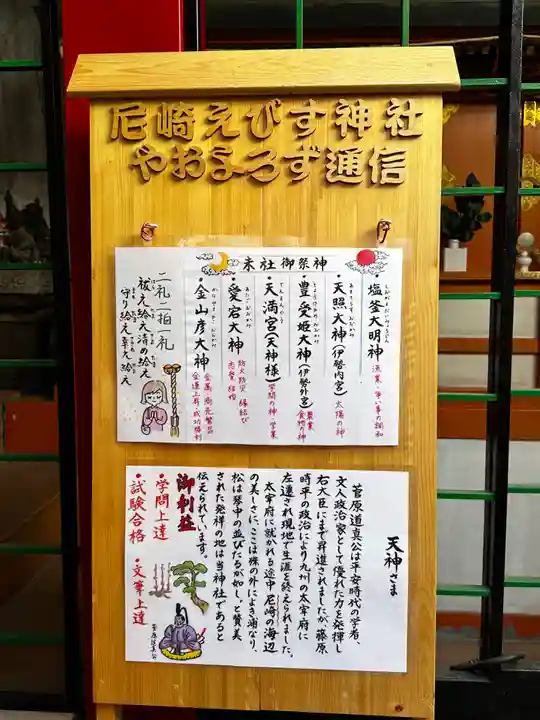 尼崎えびす神社
やおよろず通信
末社御祭神
・塩釜大明神
漁業・争い事の調和
・天照大神(伊勢内宮)
あまてらすおおかみ
太陽の神
・豊受姫大神(伊勢外宮)
農業
食物の神
・天満宮(天神様)
てんまんぐう
学問の神・学業
・愛宕大神
あたごおおかみ
防火防災・縁結び
・金山彦大神
金属・商売繁昌
金運上昇・成功勝利
二礼二拍一礼
祓え給え清め給え
守り給え幸え給え
天神さま
菅原道真公は平安時代の学者、
文人政治家として優れた力を発揮し
右大臣にまで昇進されましたが、藤原
時平の政治により九州の太宰府に
左遷され現地で生涯を終えられました。
太宰府に就かれる途中、尼崎の海辺
の美しさに、ここは株の外によき浦なり、
松は琴中の並びたるが如し。と賛美
された発祥の地は当神社であると
伝えられています。
御利益
・学問上達
・試験合格
・文筆上達
菅原道真公